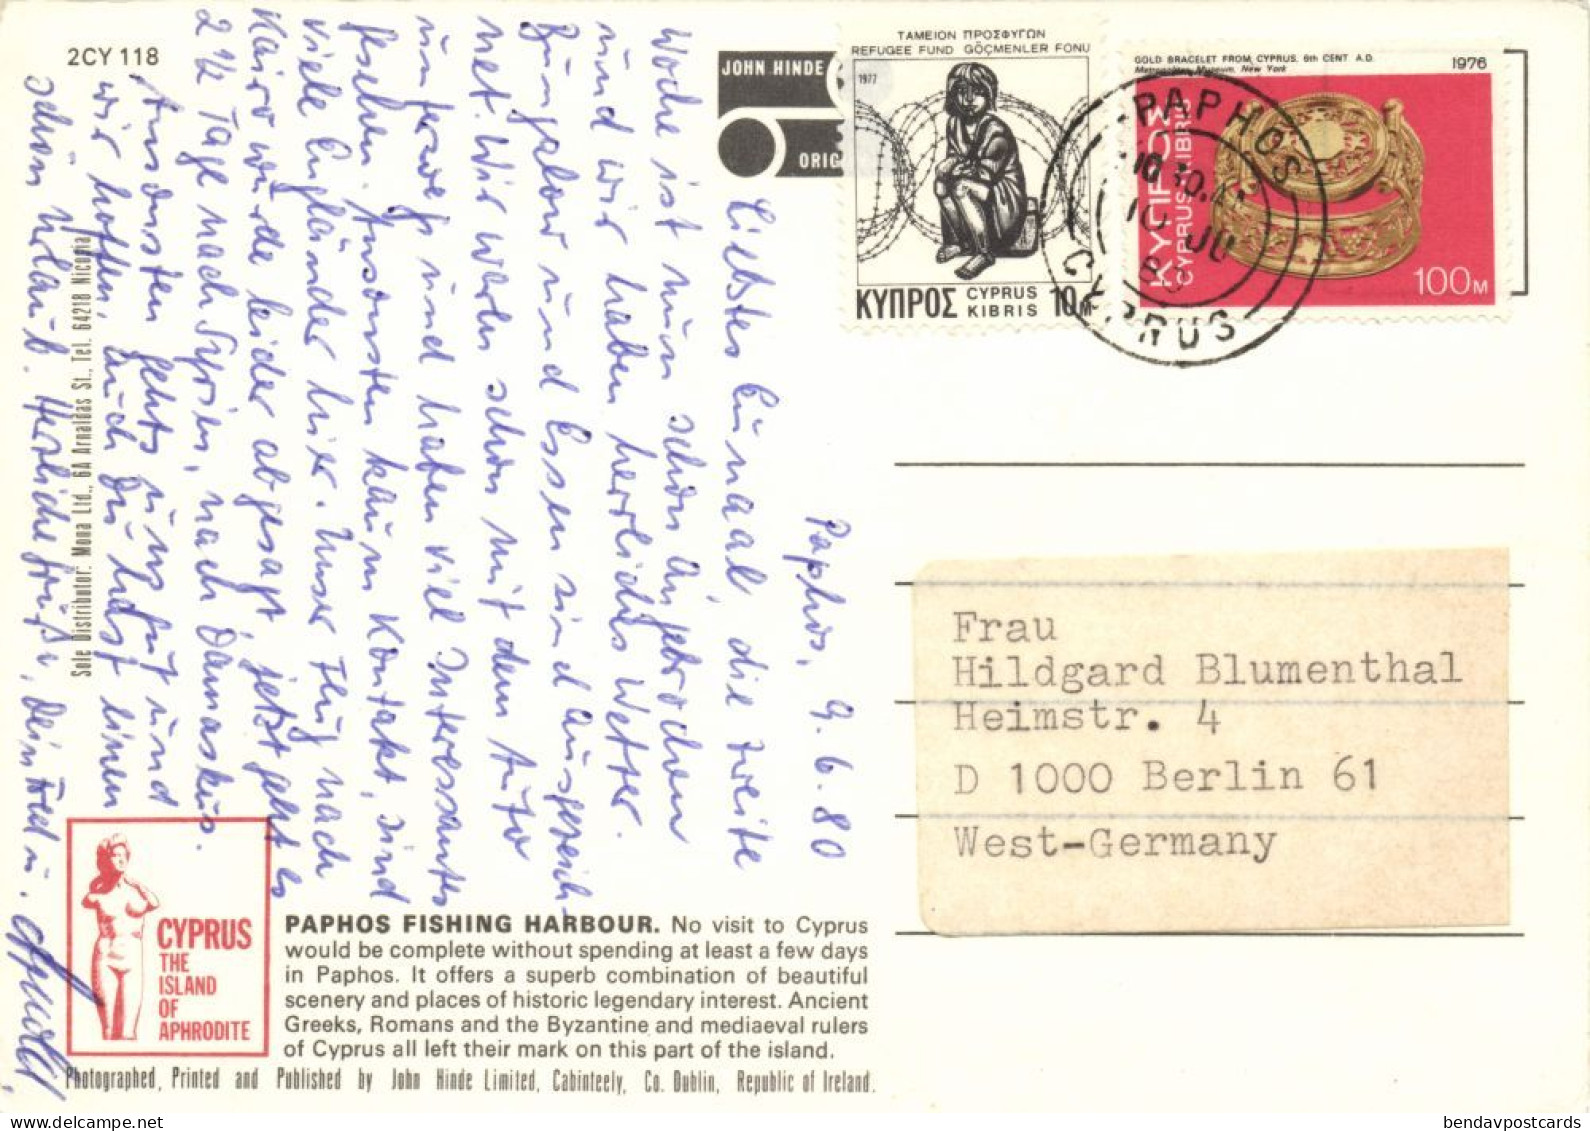 2CY 118
JOHN HINDE
ORIG
ΤΑΜΕΙΟΝ ΠΡΟΣΦΥΓΩΝ
REFUGEE FUND GÖÇMENLER FONU
1977
ΚΥΠΡΟΣ CYPRUS
KIBRIS 10M
GOLD BRACELET FROM CYPRUS, 6th CENT A.D.
Metropolitan Museum, New York
1976
ΚΥΠΡΟΣ
CYPRUS KIBRIS
100M
PAPHOS
CYPRUS
Paphos, 9.6.80
Liebstes, die zweite
Woche ist nun schon angebrochen
und wir haben herrliches Wetter.
Bungalow und Essen sind ausgezeich-
net. Wir waren schon mit dem Auto
unterwegs und haben viel Interessantes
gesehen. Ansonsten kaum Kontakt, sind
viele Engländer hier. Unser Flug nach
Kairo wurde leider abgesagt, jetzt geht es
2 1/2 Tage nach Syrien, nach Damaskus.
Ansonsten gehts uns gut und
wir hoffen, auch Du hast einen
schön Urlaub. Herzliche Grüße, Dein
Sole Distributor: Mona Ltd., 6A Arnaldas St., Tel. 64218 Nicosia
Frau
Hildgard Blumenthal
Heimstr. 4
D 1000 Berlin 61
West-Germany
CYPRUS
THE
ISLAND
OF
APHRODITE
PAPHOS FISHING HARBOUR. No visit to Cyprus
would be complete without spending at least a few days
in Paphos. It offers a superb combination of beautiful
scenery and places of historic legendary interest. Ancient
Greeks, Romans and the Byzantine and mediaeval rulers
of Cyprus all left their mark on this part of the island.
Photographed, Printed and Published by John Hinde Limited, Cabinteely, Co. Dublin, Republic of Ireland.
hwpo.net
bendavpostcards